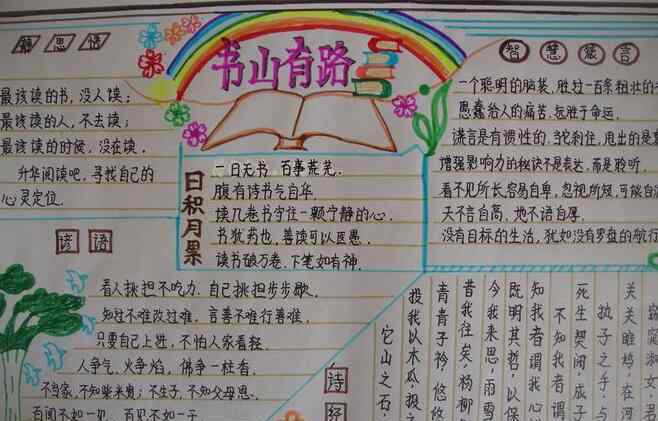 书山有路
最该读的书，没人读；
最该读的人，不去读；
最该读的时候，没在读．
升华阅读吧，寻找自己的
心灵定位．
谚语
看人挑担不吃力，自己挑担步步歇．
知过不难改过难，言善不难行善难．
只要自己上进，不怕人家看轻．
人争气，火争焰，佛争一柱香．
不当家，不知柴米贵；不生子，不知父母恩．
百闻不如一见，百见不如一干
日积月累
一日无书，百事荒芜．
腹有诗书气自华
读几卷书守住一颗宁静的心．
书犹药也，善读可以医愚．
读书破万卷，下笔如有神．
智慧箴言
一个聪明的脑袋，胜过一百条粗壮的
愚蠢给人的痛苦，远胜于命运．
谎言是有惯性的，当它刹住，甩出的是
增强影响力的秘诀不是表达，而是聆听．
看不见所长，容易自卑，忽视所短，可能自
天不言自高，地不语自厚．
没有目标的生活，犹如没有罗盘的航行
诗经
窈窕淑女，君
关关雎鸠，在河
执子之手，与
死生契阔，成
不知我者谓
知我者谓我心
既明其哲，以保
今我来思，雨雪
昔我往矣，杨柳
青青子衿，悠悠
投我以木瓜，报
它山之石，